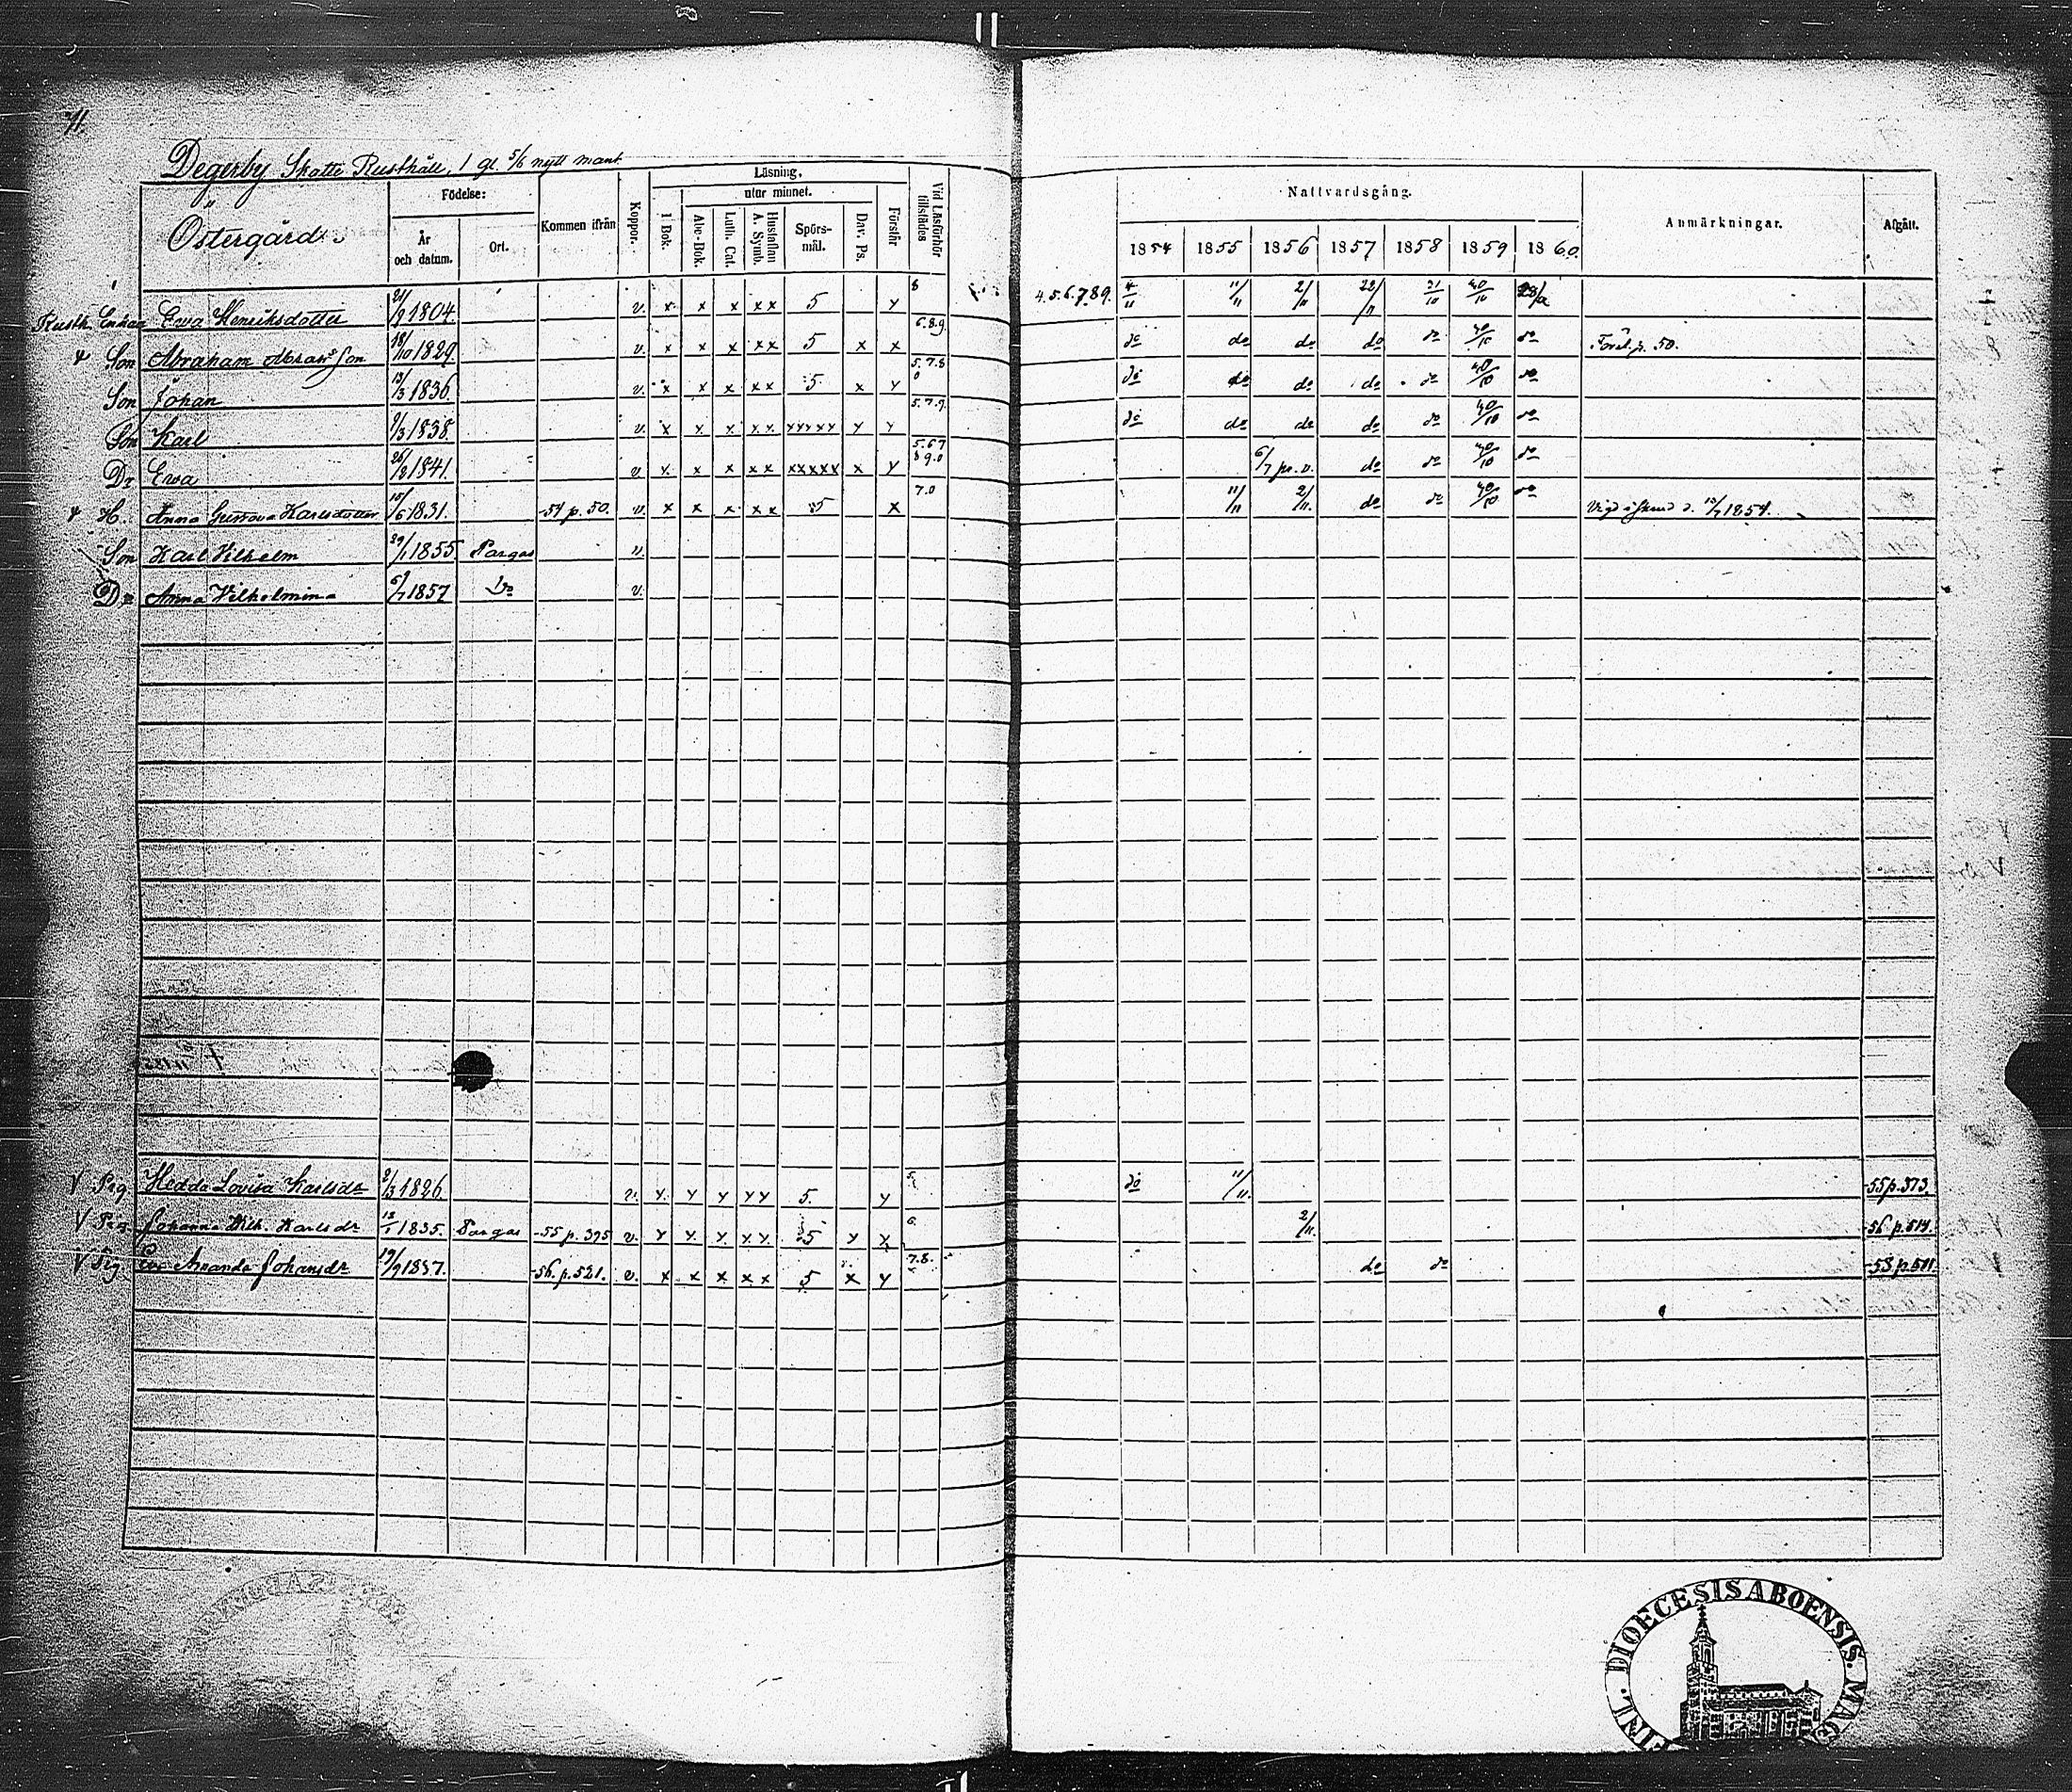 71.
Degerby Skatte Rusthåll, 1 gl. 5/6 nytt mant.
Östergård.
Födelse: År och datum. Ort. Kommen ifrån Koppor. Läsning, utur minnet. I Bok. Abc-Bok. Luth. Cat. Hustaflan A. Symb. Spörsmål. Dav. Ps. Förstår. Vid Läsförhör tillstädes
Nattvardsgång. 1854 1855 1856 1857 1858 1859 1860. Anmärkningar. Afgått.
Rusth. Enkan Ewa Henriksdotter 21/9 1804. v. x x x x x 5 x 8 4.5.6.7.8.9. 4/11 11/11 2/11 22/11 31/10 30/10
Son Abraham Abrahsson 18/10 1829. v. x x x x x 5 x x 6.8.9. do do do do do 30/10 do p. 50.
Son Johan 13/3 1836. v. x x x x x 5. x x 5.7.8 0 do do do do do 30/10 do
Son Karl 9/3 1838. v. x x x x x xxxxx x x 5.7.9. do do do do do 30/10 do
Dr Ewa 26/8 1841. v. x x x x x xxxxx x x 5.6.7 8 9.0 6/7 pr. v. do do 30/10 do
H. Anna Gustava Karlsdotter 15/6 1831. -54 p. 50. v. x x x x x 5 x 7.0 11/11 2/11. do do 30/10 do 1854.
Son Karl Vilhelm 29/1 1855 Pargas v.
Dr Anna Vilhelmina 6/7 1857 Do v.
V Pig Hedda Lovisa Karlsdr 2/3 1826. v. x x x x x 5. x 5. do 11/11. -55 p. 373.
V Pig Johanna Wilh. Karlsdr 12/1 1835. Pargas -55 p. 395 v. x x x x x 5 x x 6. 2/11. -56 p. 514.
V Pig Eva Amanda Johansdr 19/9 1837. -56. p. 521. v. x x x x x 5 x x 7.8. do do -58 p. 511.
FINL. DIOECESIS ABOENSIS. MAG